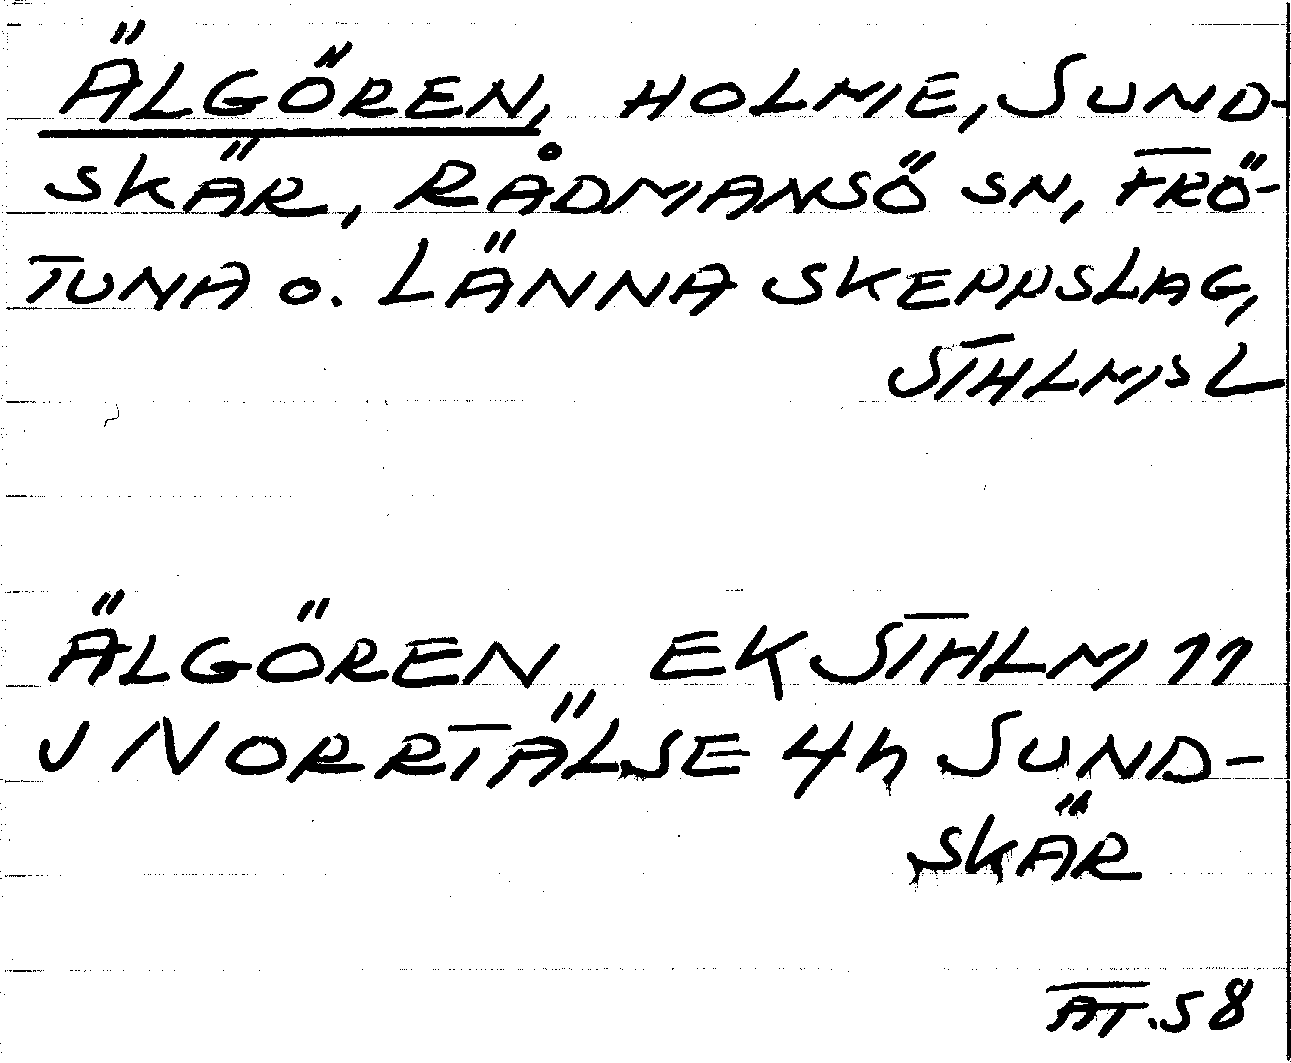 ÄLGÖREN, HOLME, SUND-
SKÄR, RÅDMANSÖ SN, FRÖ-
TUNA o. LÄNNA SKEPPSLAG,
STHLMS L
ÄLGÖREN EK STHLM 11
J NORRTÄLSE 4h SUND-
SKÄR
AT.58